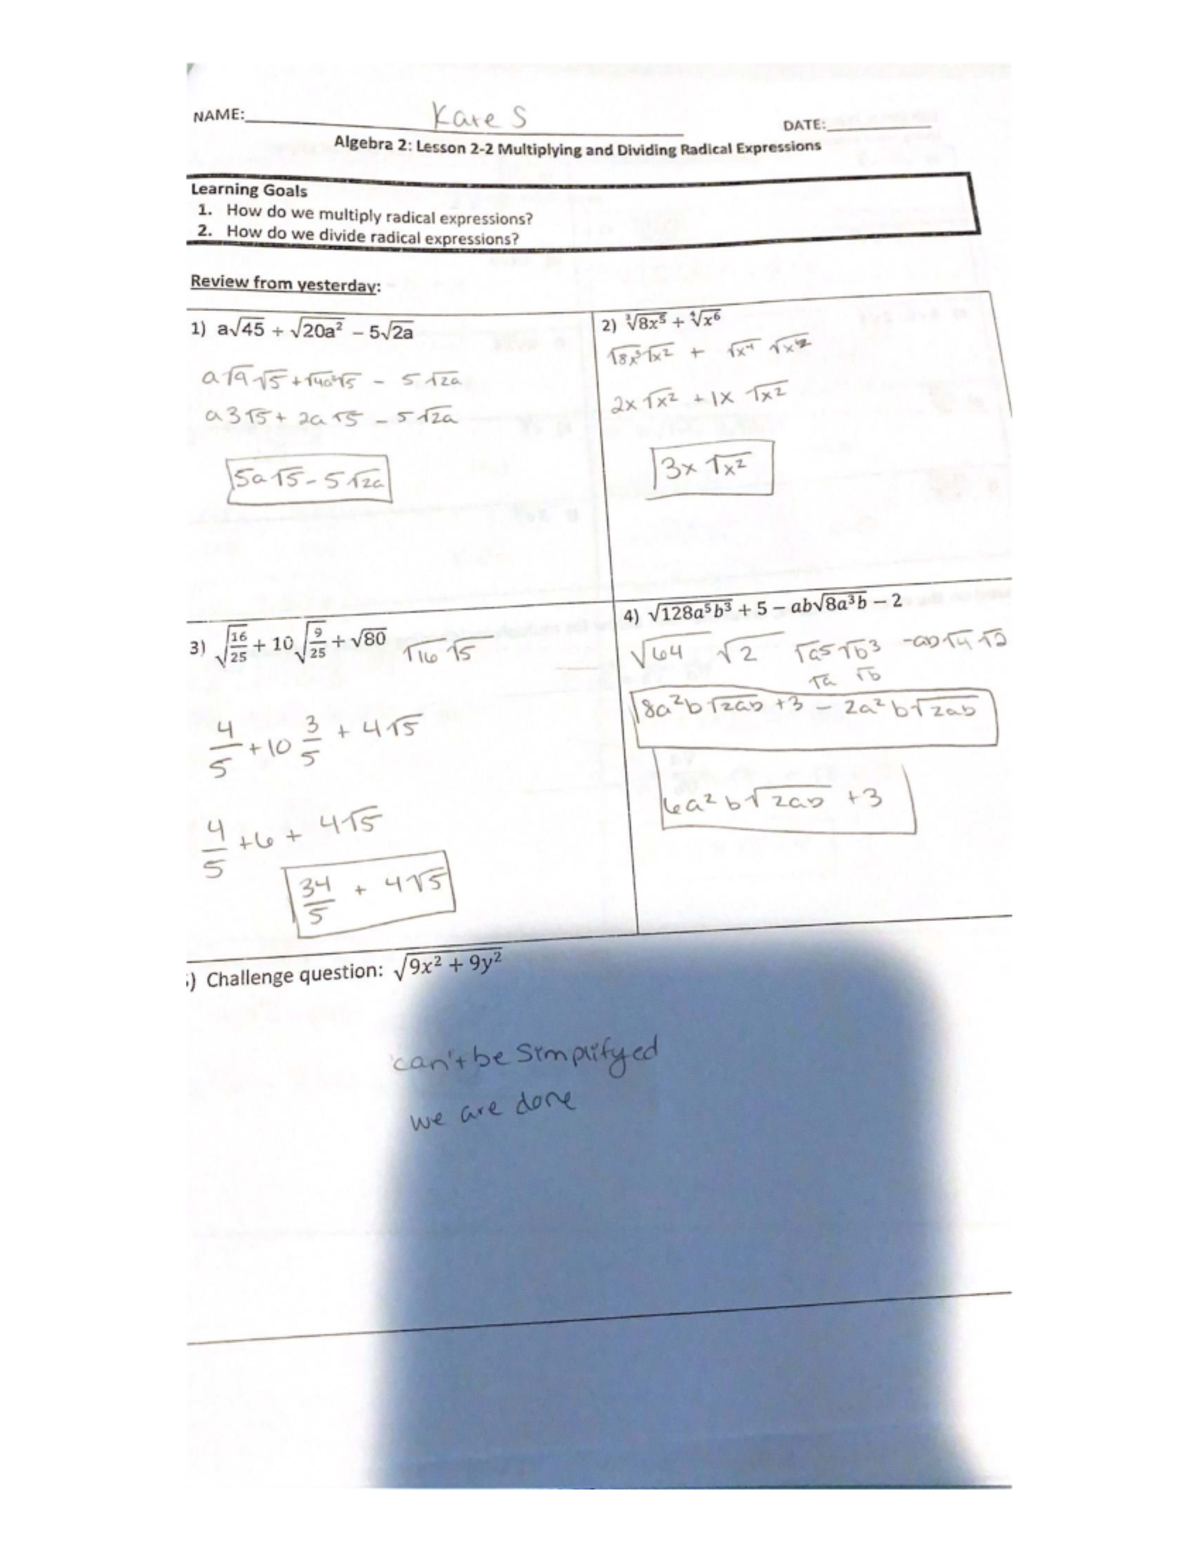 NAME: Kate S DATE:
Algebra 2: Lesson 2-2 Multiplying and Dividing Radical Expressions
Learning Goals
1. How do we multiply radical expressions?
2. How do we divide radical expressions?
Review from yesterday:
1) a√45 + √20a² − 5√2a
a√9√5 + √4a²√5 − 5√2a
a3√5 + 2a√5 − 5√2a
5a√5 − 5√2a
2) ∛8x⁵ + ∜x⁶
√8x³√x² + √x⁴ √x²
2x√x² + 1x √x²
3x√x²
3) √16/25 + 10√9/25 + √80
√16 √5
4/5 + 10 3/5 + 4√5
4/5 + 6 + 4√5
34/5 + 4√5
4) √128a⁵b³ + 5 − ab√8a³b − 2
√64 √2 √a5√b3 -ab√4 √2
√a √b
8a²b√2ab + 3 − 2a²b√2ab
6a²b√2ab + 3
) Challenge question: √9x² + 9y²
can't be simplifyed
we are done